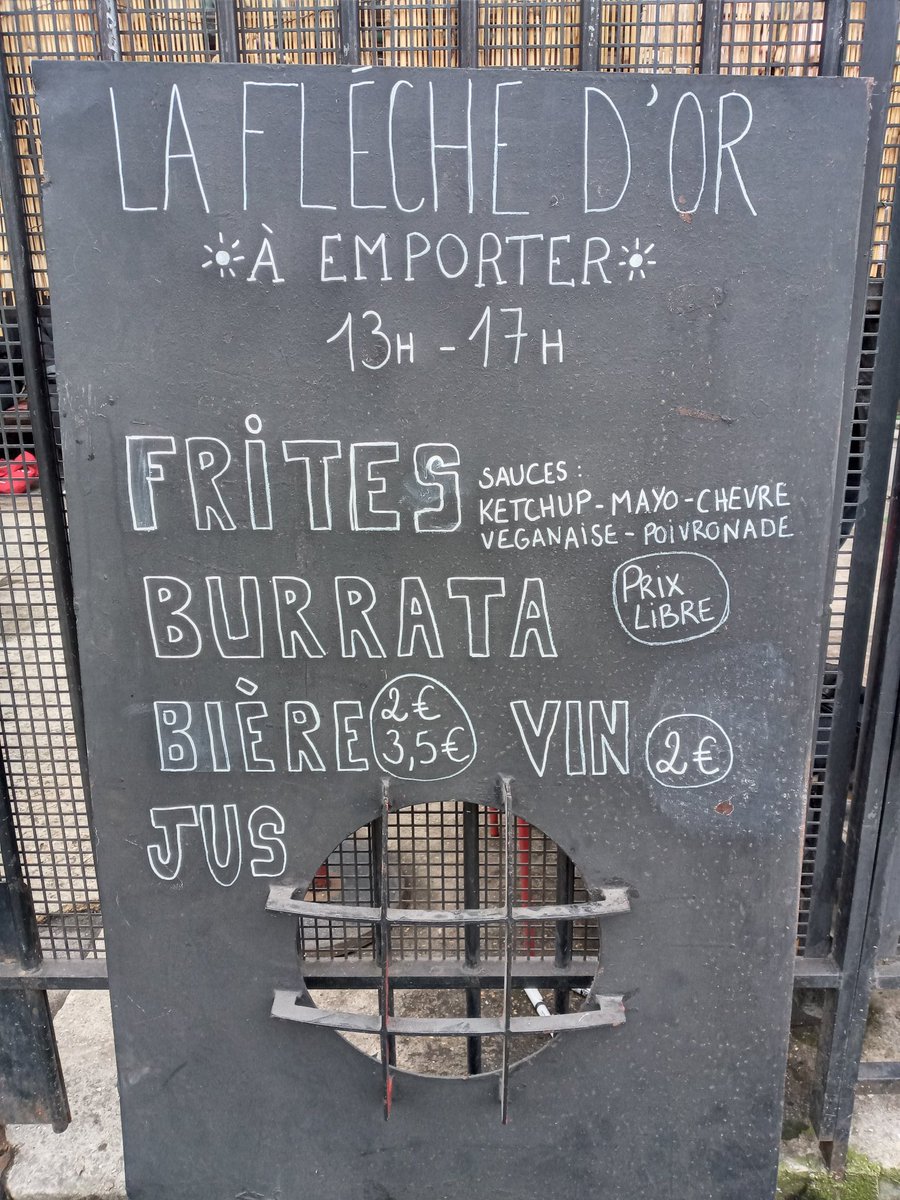 LA FLÉCHE D'OR
À EMPORTER
13H - 17H
FRiTES
SAUCES :
KETCHUP - MAYO - CHEVRE
VEGANAISE - POIVRONADE
BURRATA
PRIX
LiBRE
BIÈRE 2€
3,5€
VIN 2€
JUS